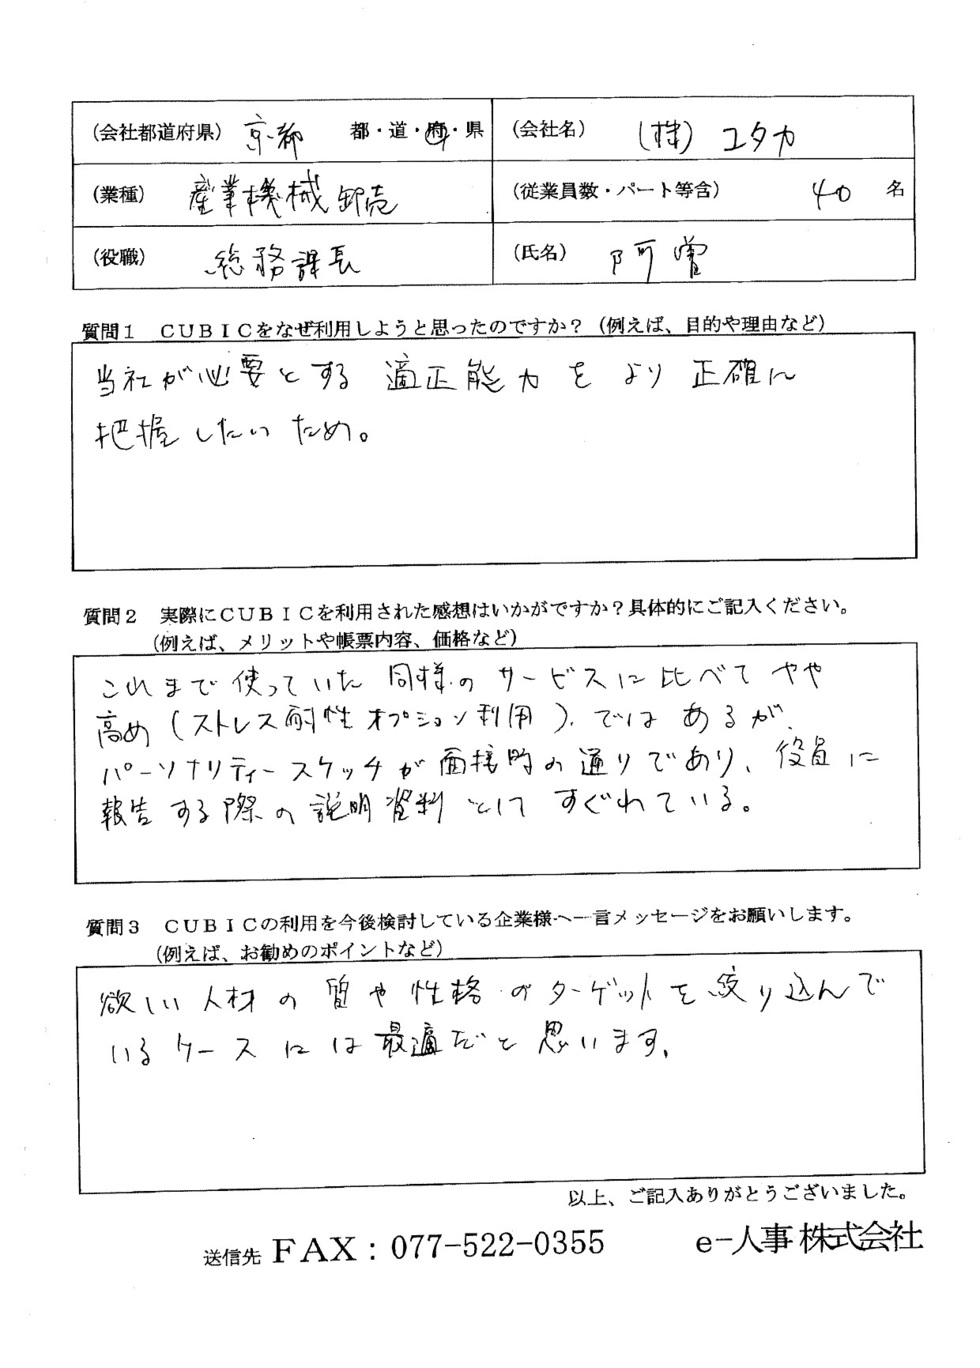 (会社都道府県) 京都 都・道・府・県 (会社名) (株) ユタカ
(業種) 産業機械卸売 (従業員数・パート等含) 40 名
(役職) 総務課長 (氏名) 阿曽
質問1 CUBICをなぜ利用しようと思ったのですか? (例えば、目的や理由など)
当社が必要とする 適正能力 を より 正確に
把握したい ため。
質問2 実際にCUBICを利用された感想はいかがですか?具体的にご記入ください。
(例えば、メリットや帳票内容、価格など)
これまで使っていた 同様の サービスに比べて やや
高め (ストレス耐性オプション利用)、ではあるが、
パーソナリティースケッチが面接時の通りであり、役員に
報告する際の説明資料として すぐれている。
質問3 CUBICの利用を今後検討している企業様へ一言メッセージをお願いします。
(例えば、お勧めのポイントなど)
欲しい人材の質や性格のターゲットを絞り込んで
いるケースには最適だと思います。
以上、ご記入ありがとうございました。
送信先 FAX:077-522-0355 e-人事株式会社